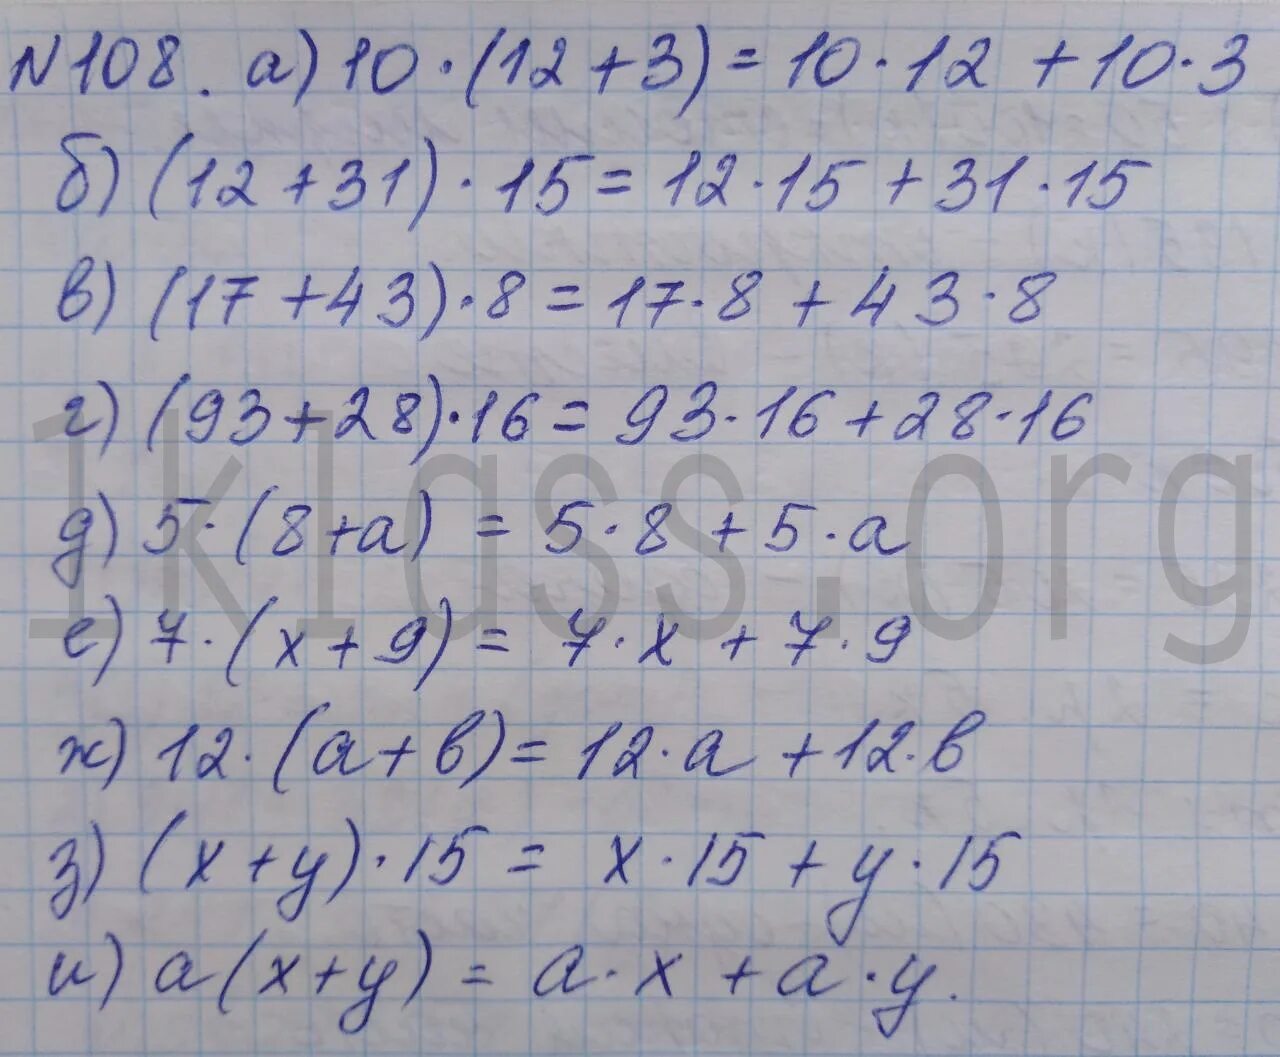 N108. а) 10·(12+3)=10·12+10·3
б) (12+31)·15=12·15+31·15
в) (17+43)·8=17·8+43·8
г) (93+28)·16=93·16+28·16
д) 5·(8+a)=5·8+5·a
е) 7·(x+9)=7·x+7·9
ж) 12·(a+b)=12·a+12·b
з) (x+y)·15=x·15+y·15
и) a(x+y)=a·x+a·y.
1klass.org